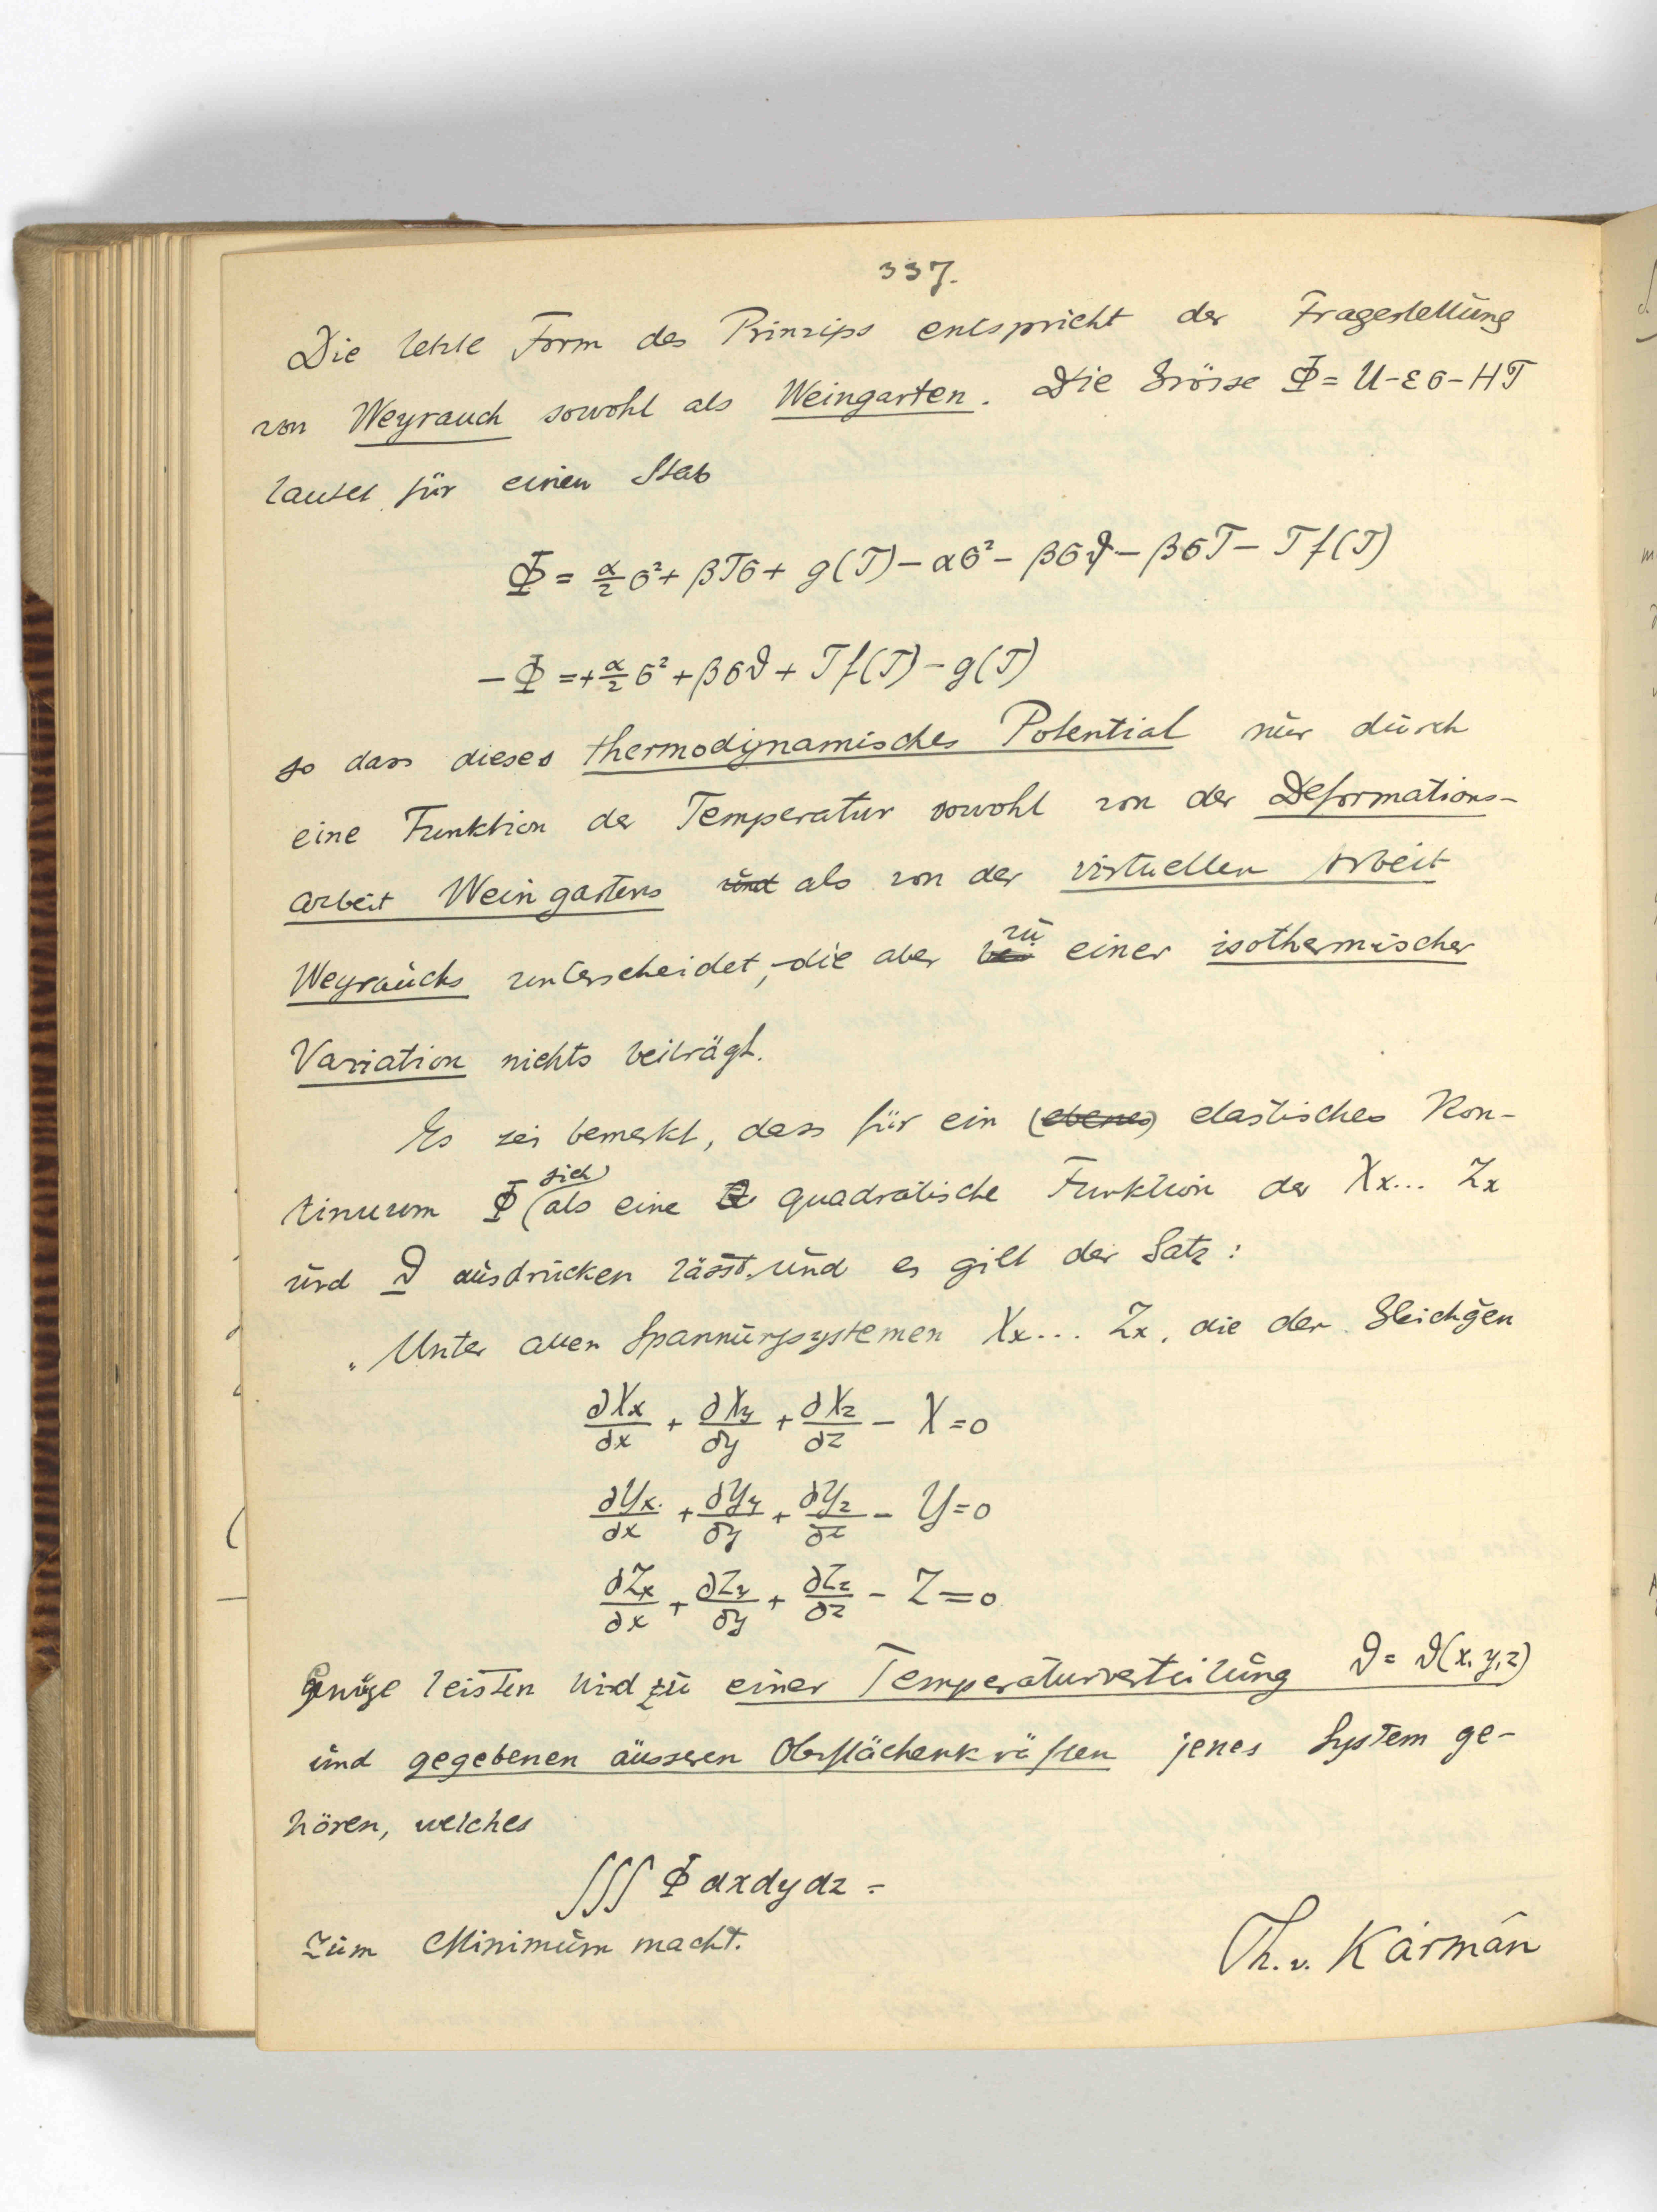 337.
Die letzte Form des Prinzips entspricht der Fragestellung
von Weyrauch sowohl als Weingarten. Die Grösse Φ = U-εσ-HT
lautet für einen Stab
Φ = α/2 σ² + βTσ + g(T) - ασ² - βσϑ - βσT - Tf(T)
-Φ = + α/2 σ² + βσϑ + Tf(T) - g(T)
so dass dieses thermodynamisches Potential nur durch
eine Funktion der Temperatur sowohl von der Deformations-
arbeit Weingartens und als von der virtuellen Arbeit
Weyrauchs unterscheidet, die aber zu einer isothermischer
Variation nichts beiträgt.
Es sei bemerkt, dass für ein (ebenes) elastisches Kon-
tinuum Φ (sich) als eine quadratische Funktion der Xx... Zx
und ϑ ausdrücken lässt und es gilt der Satz:
„Unter allen Spannungssystemen Xx... Zx, die den Gleichgen
∂Xx/∂x + ∂Xy/∂y + ∂Xz/∂z - X = 0
∂Yx/∂x + ∂Yy/∂y + ∂Yz/∂z - Y = 0
∂Zx/∂x + ∂Zy/∂y + ∂Zz/∂z - Z = 0
Genüge leisten wird zu einer Temperaturverteilung ϑ = ϑ(x,y,z)
und gegebenen äusseren Oberflächenkräften jenes System ge-
hören, welches
∫∫∫ Φ dxdydz =
zum Minimum macht.
Th. v. Kármán